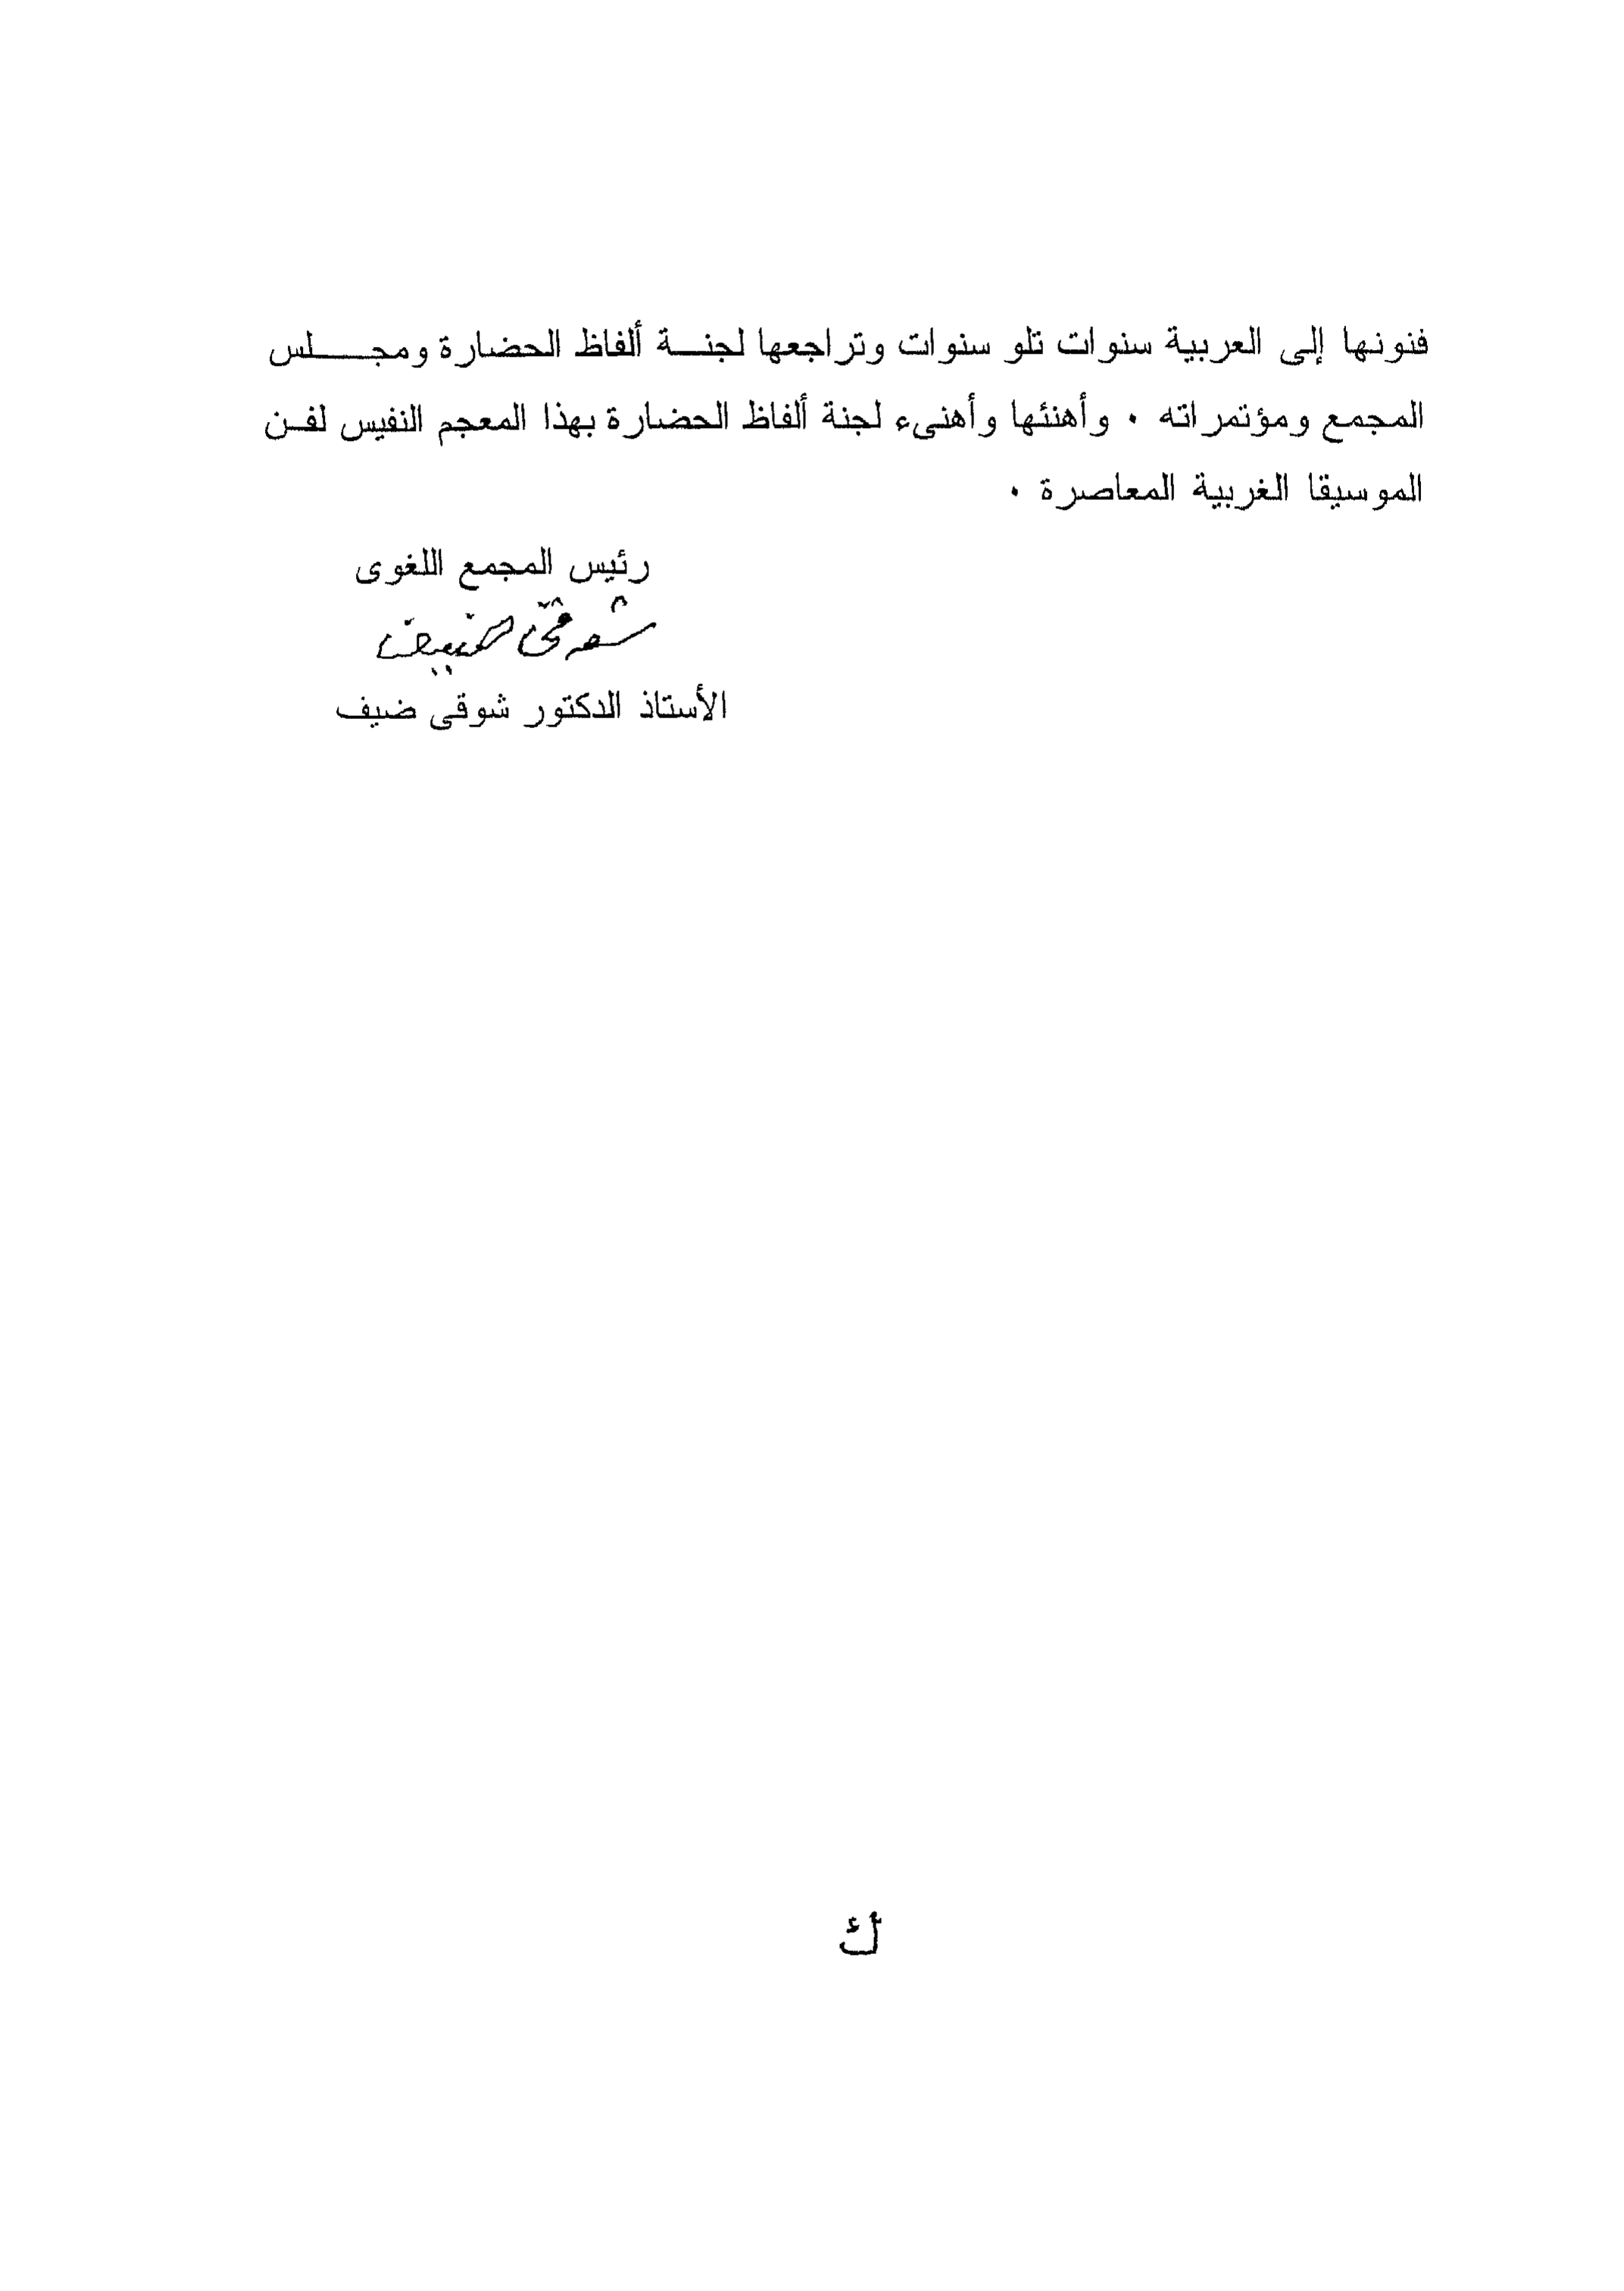 فنونها إلى العربية سنوات تلو سنوات وتراجعها لجنـــة ألفاظ الحضارة ومجـــــلس
المجمع ومؤتمراته ٠ وأهنئها وأهنىء لجنة ألفاظ الحضارة بهذا المعجم النفيس لفـن
الموسيقا الغربية المعاصرة ٠
رئيس المجمع اللغوى
شوقى ضيف
الأستاذ الدكتور شوقى ضيف
ك